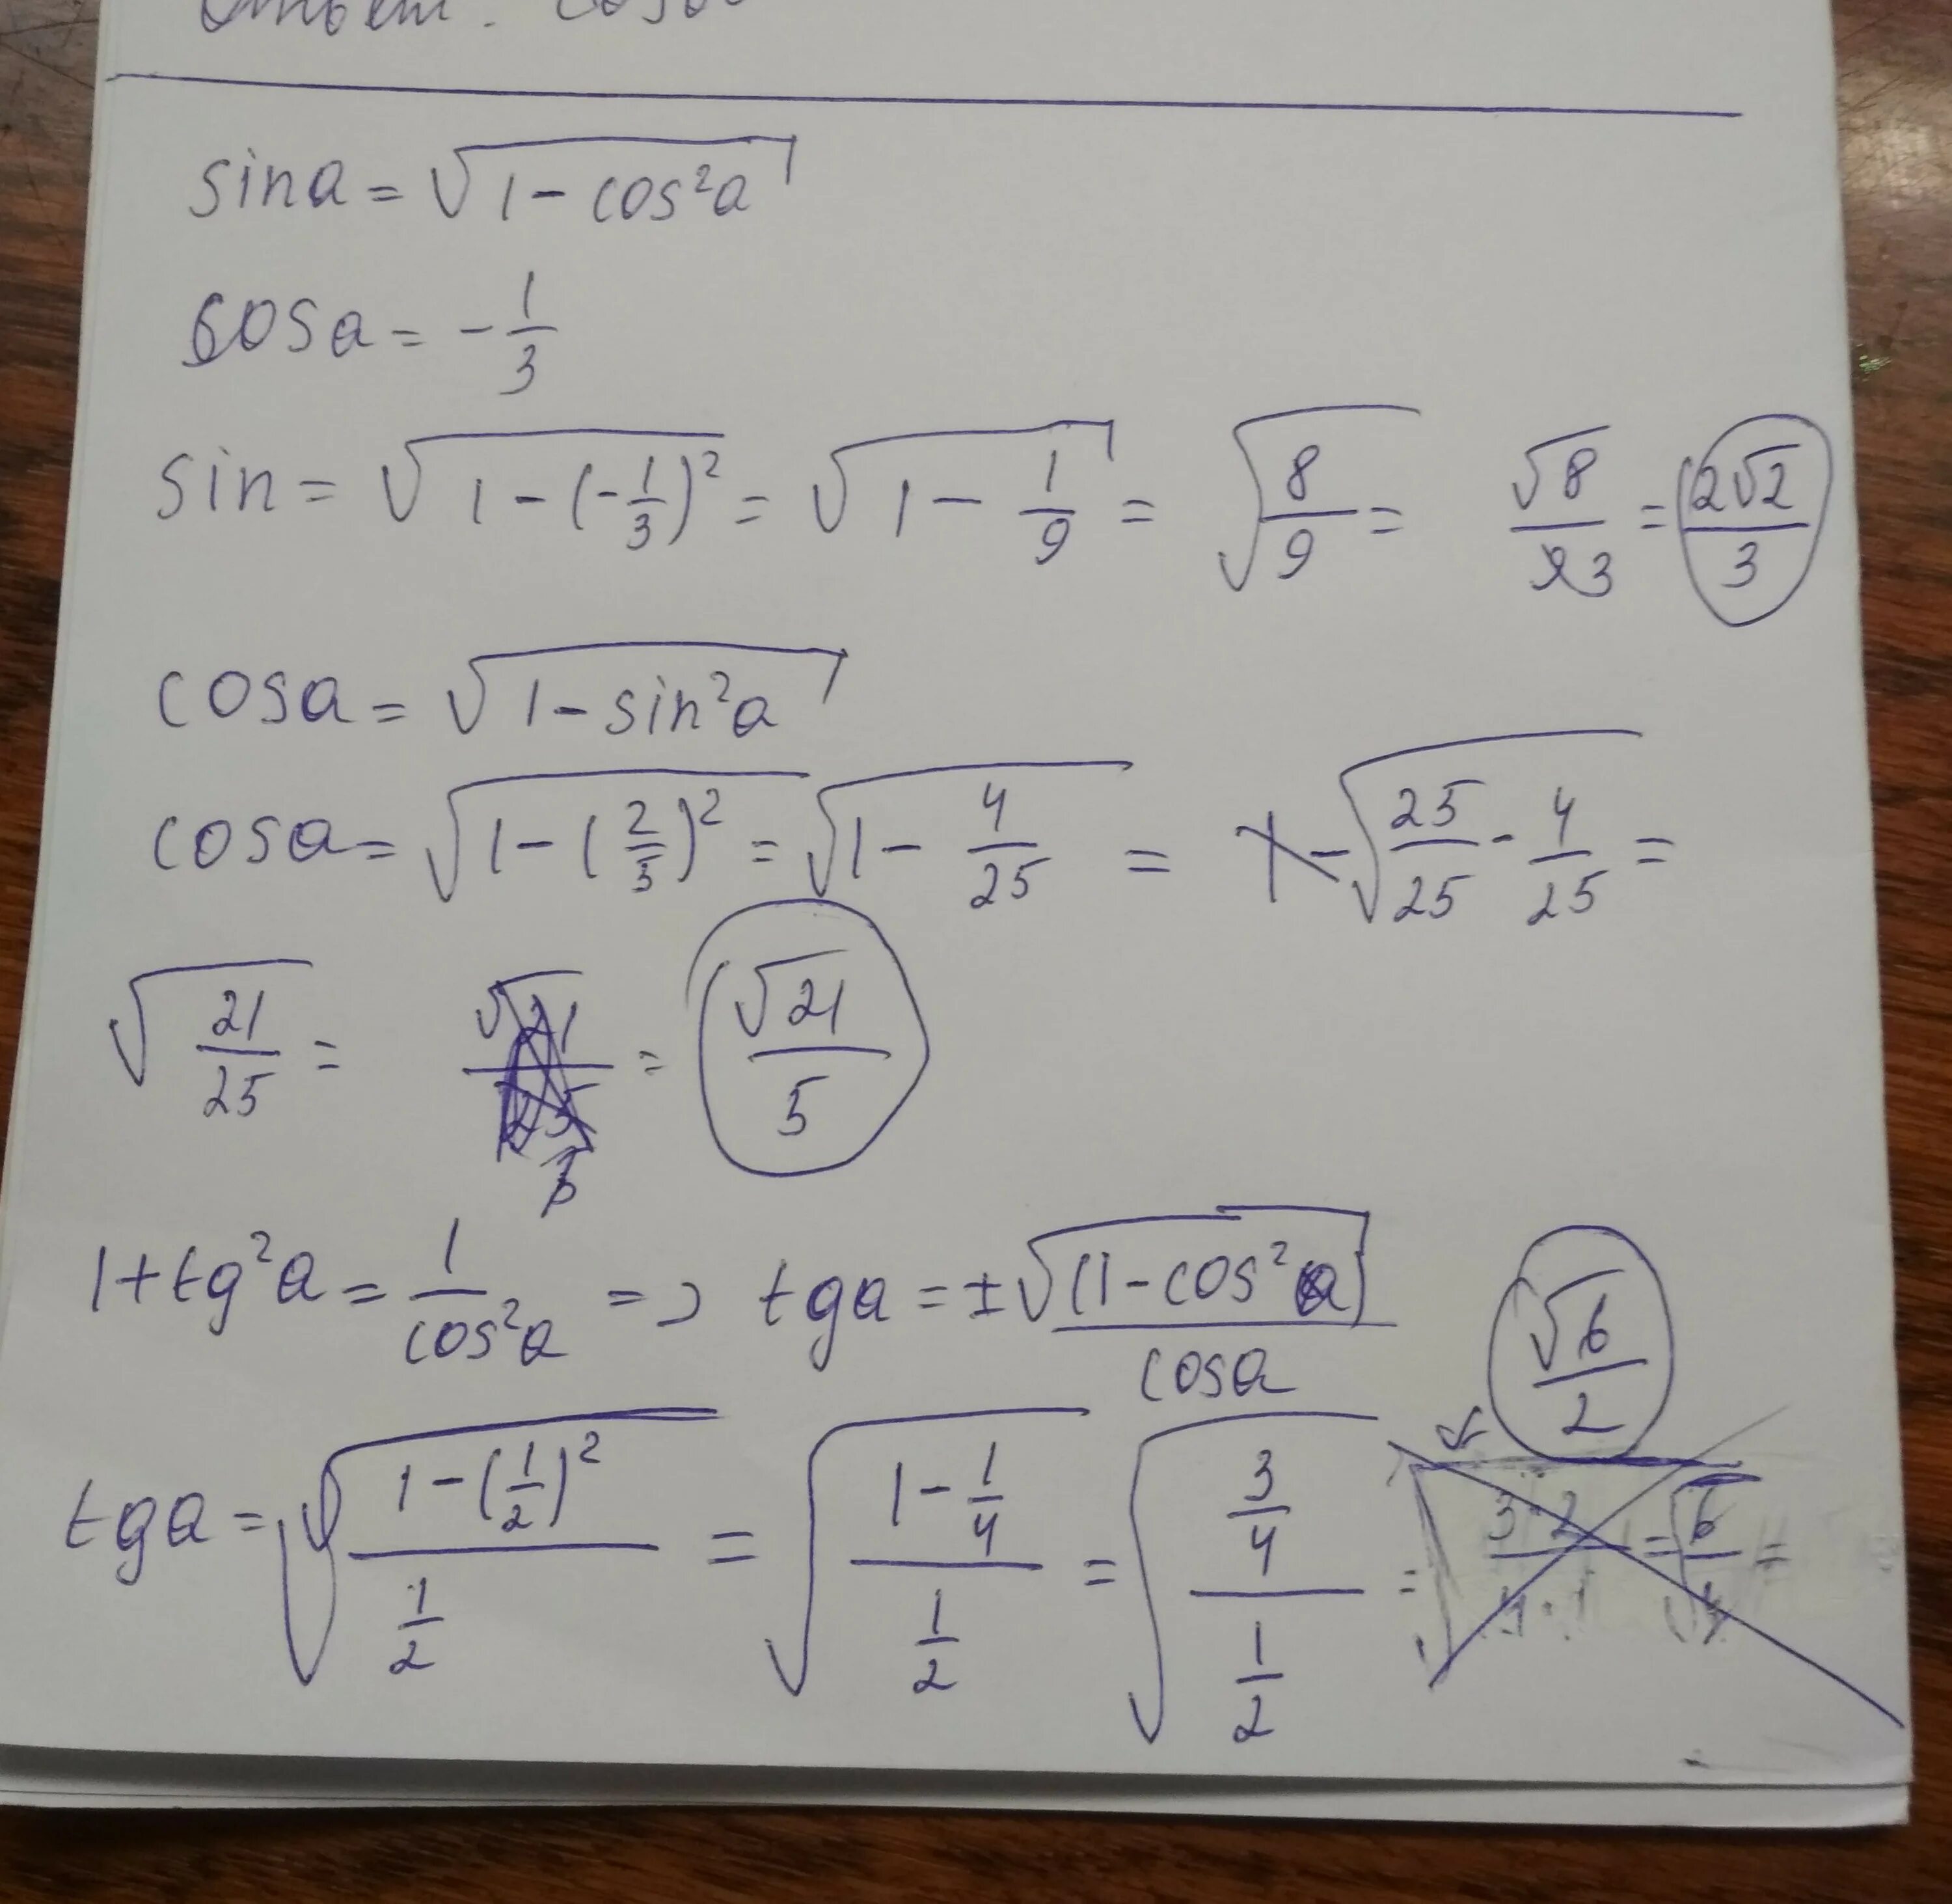 Ответ: cos
sina = √(1 - cos²a)
cosa = - 1/3
sin = √(1 - (-1/3)²) = √(1 - 1/9) = √(8/9) = √8/3 = 2√2/3
cosa = √(1 - sin²a)
cosa = √(1 - (2/5)²) = √(1 - 4/25) = √(25/25 - 4/25) =
√(21/25) = = √21/5
1 + tg²a = 1/cos²a => tga = ±√(1 - cos²a)/cosa
√6/2
tga = √((1 - (1/2)²)/(1/2)) = √((1 - 1/4)/(1/2)) = √((3/4)/(1/2)) = √(3·2/4·1) = √6/√4 =